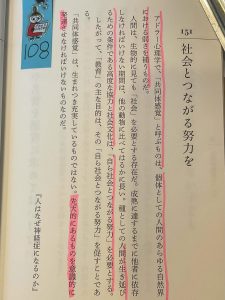 151
社会とつながる努力を
アドラー心理学で、「共同体感覚」と呼ぶものは、個体としての人間のあらゆる自然界
における弱さを補うものだ。
人間は、生物的に見ても「社会」を必要とする存在だ。成熟に達するまでに他者に依存
しなければいけない期間は、他の動物に比べてはるかに長い。種としての人間が生き延び
るための条件である高度な協力と社会文化は、「自ら社会とつながる努力」を必要とする。
したがって、「教育」の主な目的は、その「自ら社会とつながる努力」を促すことであ
る。
「共同体感覚」は、生まれつき充実しているものではない。先天的にあるものを意識的に
発達させなければいけないものなのだ。
『人はなぜ神経症になるのか』
108